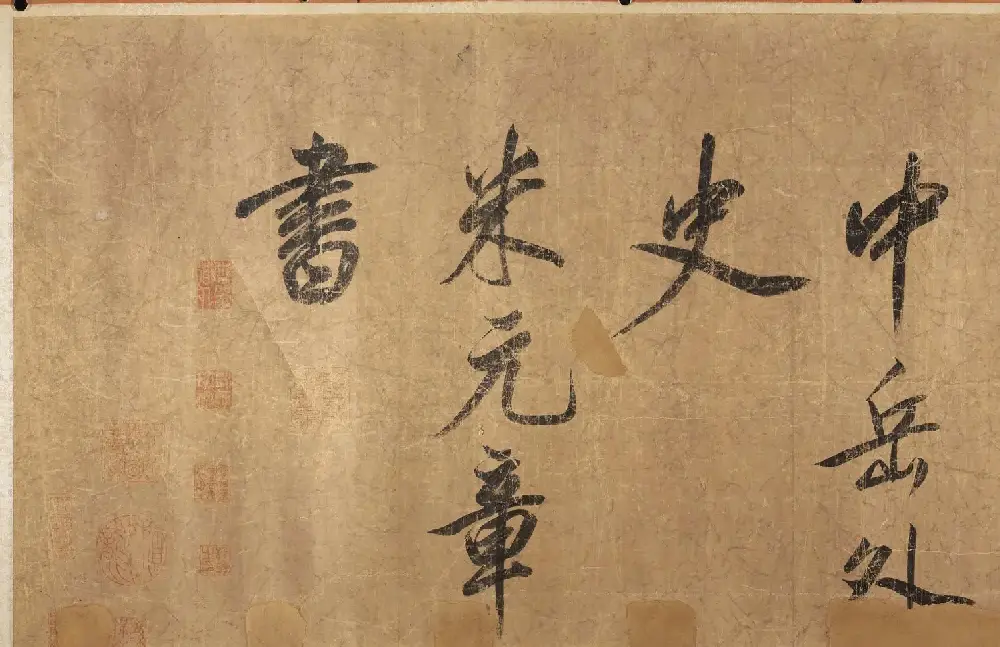 中岳外
史
米元章
書